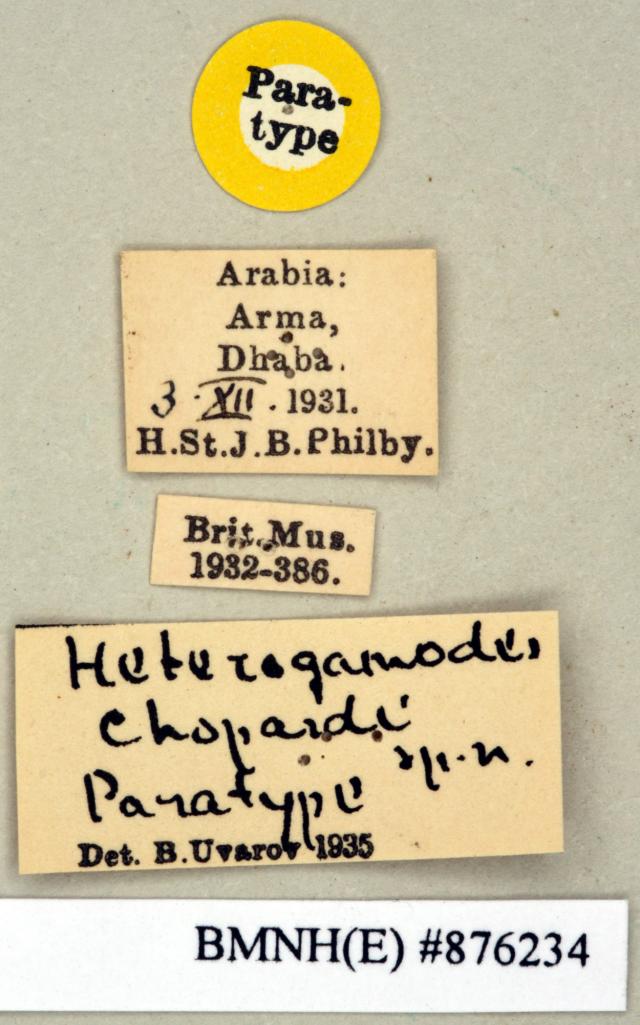 Para-
type
Arabia:
Arma,
Dhaba.
3.XII.1931.
H.St.J.B.Philby.
Brit.Mus.
1932-386.
Heterogamodes
chopardi
sp.n.
Paratype
Det. B.Uvarov 1935
BMNH(E) #876234